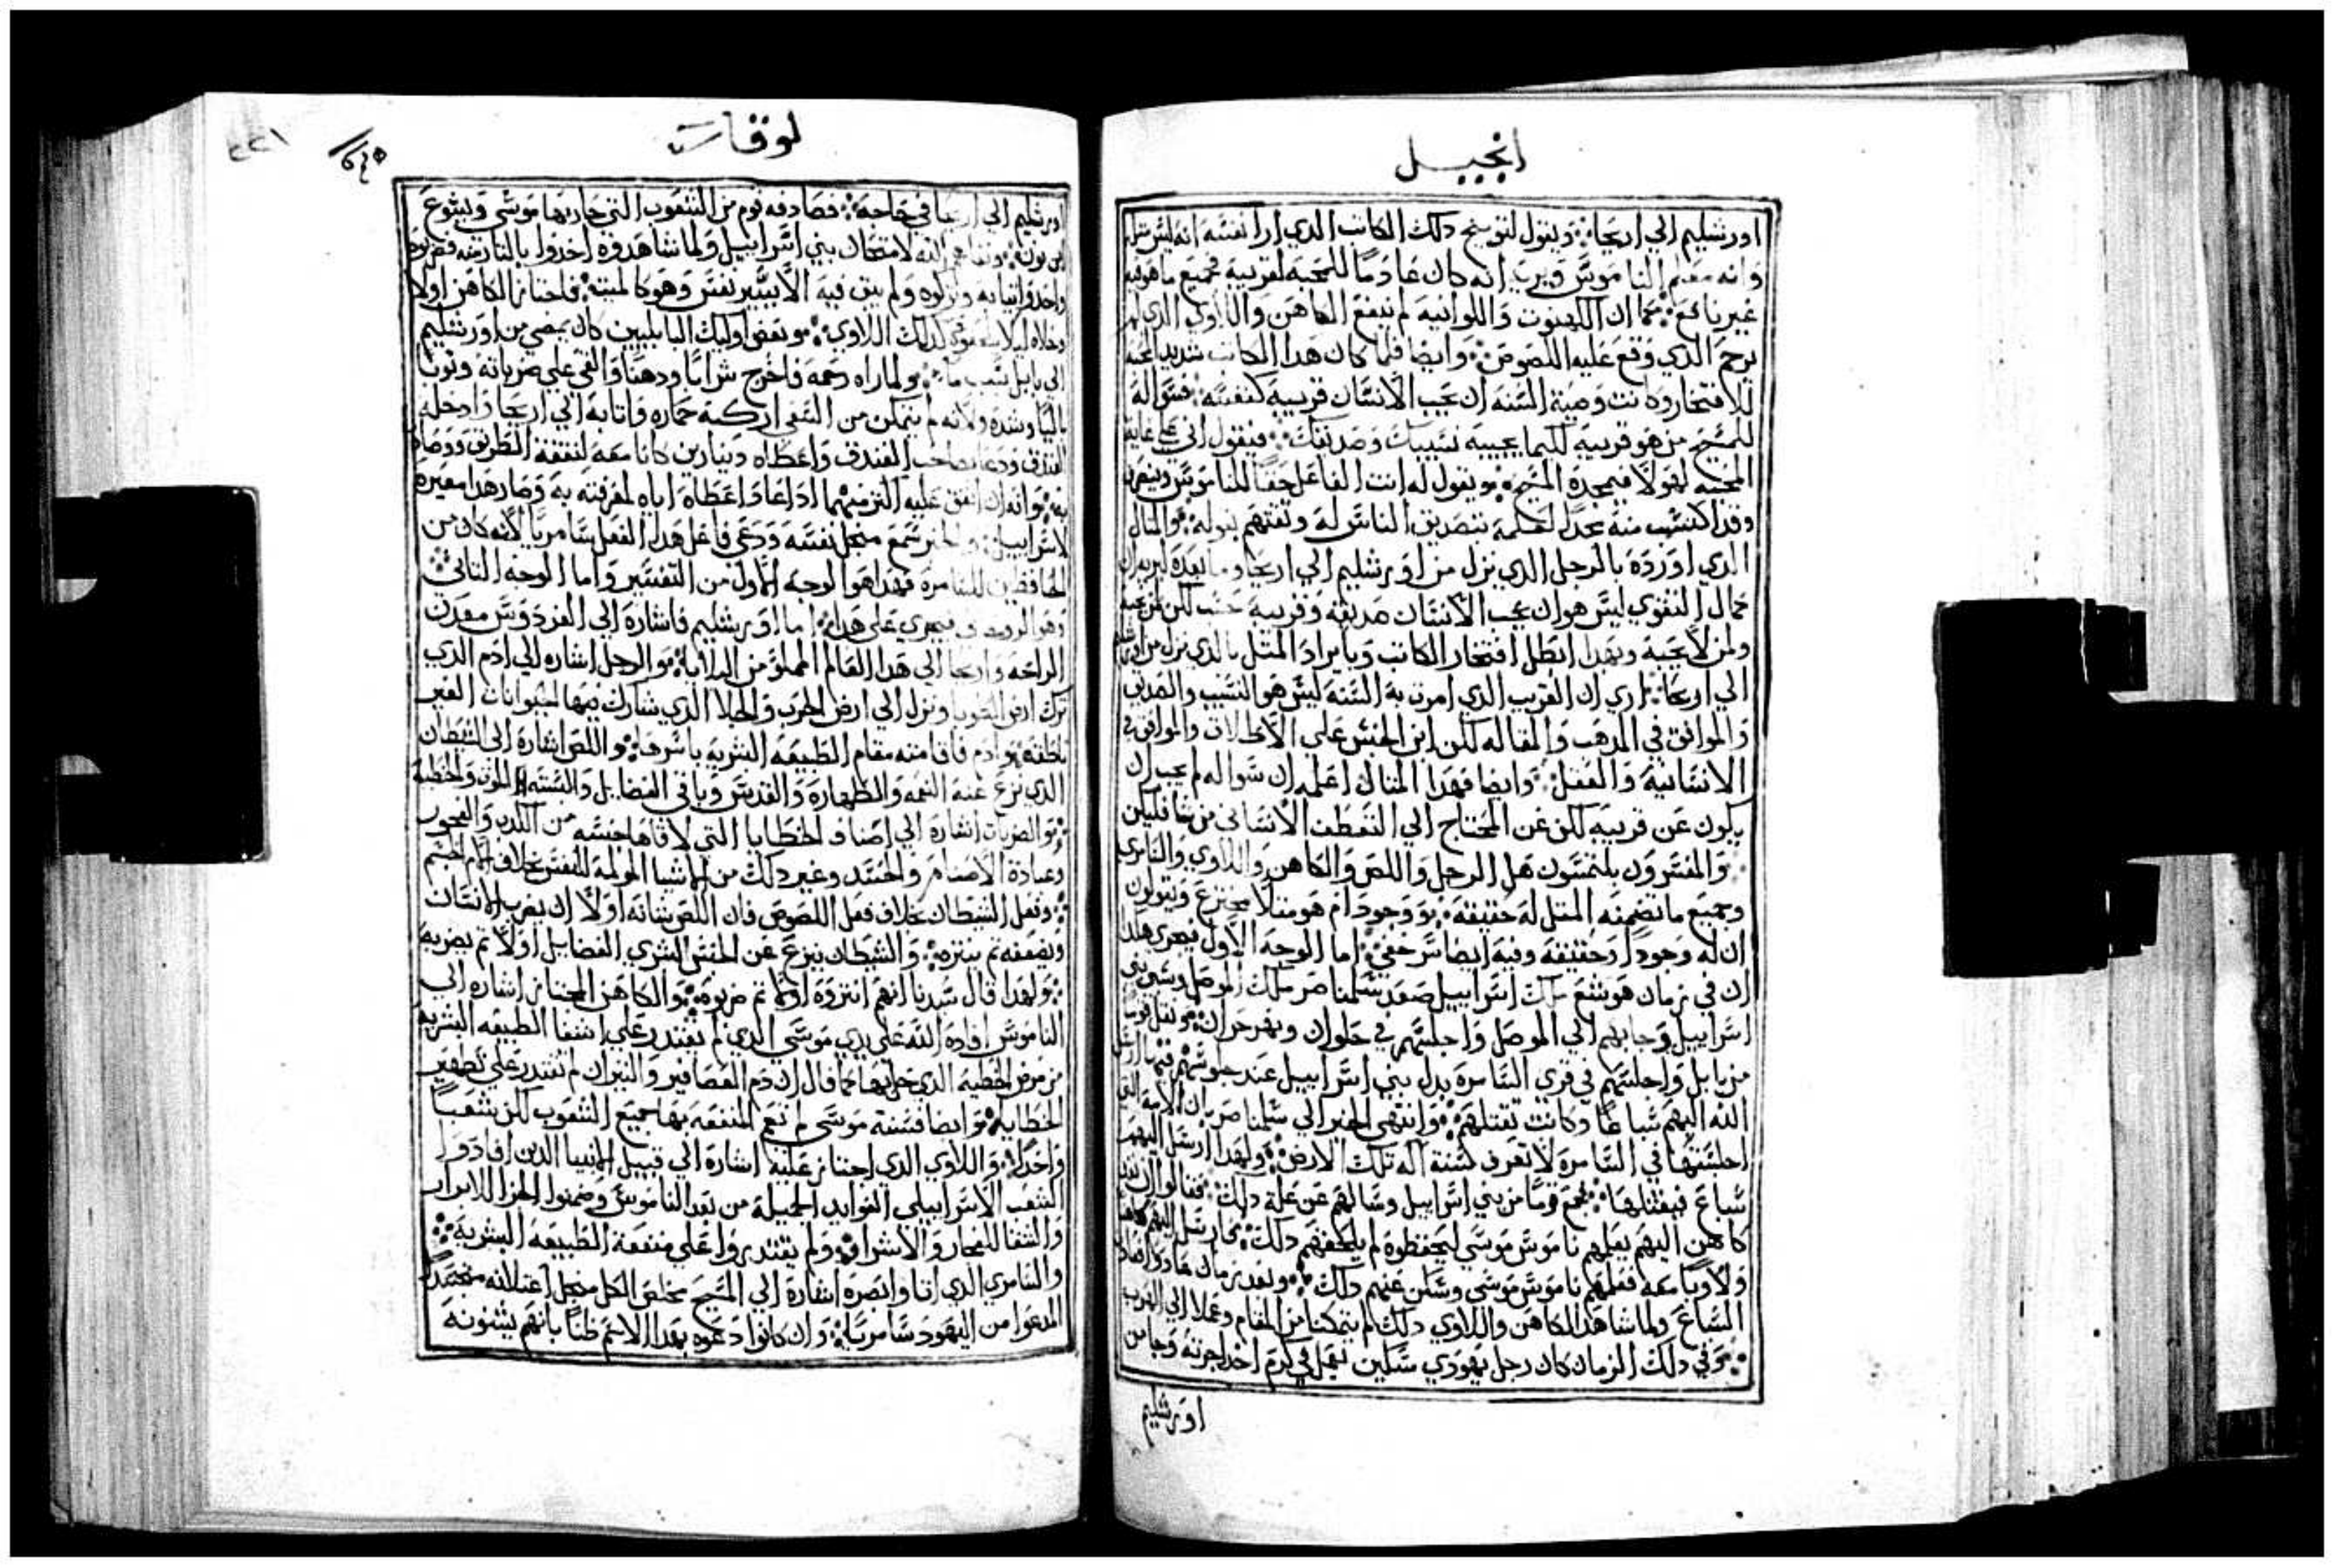 انجيل
اورشليم الي اريحا ويقول لتوبيخ دلك الكاتب الدي ارا نفسه انه ليس
وانه معلم الناموس ويريه انه كان عادما للمحبه لقريبه فجميع ما هو فيه
غير نافع كما ان الكهنوت واللوانيه لم تنفع الكاهن واللاوي الدي لم
يرحم الدي وقع عليه اللصوص وايضا فلما كان هدا الكاتب شديد المحبه
للافتخار وكانت وصية السنه ان يحب الانسان قريبه كنفسه فسواله
للمسيح من هو قريبه لكيما يجيبه نسيبك وصديقك فيقول اني علي غاية
المحبه لهولا فيمجده المسيح ويقول له انت الفاعل حقا للناموس
وقد اكتسب منه مجدا لعظمة بتصديق الناس له وثقتهم بقوله والمثال
الدي اورده بالرجل الدي نزل من اورشليم الي اريحا وما بعده ليريه ان
كمال التقوي ليس هو ان يحب الانسان صديقه وقريبه حسب لكن لمن يحبه
ولمن لا يحبه وبهدا ابطل افتخار الكاتب وبايراد المثل بالدي نزل من اورشليم
الي اريحا اري ان القريب الدي امرت به السنه ليس هو النسيب والصديق
والموافق في المدهب والمقاله لكن ابن الجنس علي الاطلاق والموافق في
الانسانية والعقل وايضا فهدا المثال اعلمه ان سواله لم يجب ان
يكون عن قريبه لكن عن المحتاج الي التعطف الانساني
والمفسرون يلتمسون هل الرجل واللص والكاهن واللاوي والسامري
وجميع ما تضمنه المثل له حقيقه ووجود ام هو مثلا مخترع ويقولون
ان له وجودا وحقيقه وفيه ايضا سر خفي اما الوجه الاول فيجري هكدا
ان في زمان هوشع ملك اسراييل صعد شلمناصر ملك الموصل وسبي بني
اسراييل وجابهم الي الموصل واجلسهم في حلوان ونهر حران ونقل قوما
من بابل واجلسهم في قري السامره بدل بني اسراييل عند جلوسهم فيها ارسل
الله اليهم سباعا وكانت تقتلهم وانتهي الخبر الي شلمناصر بان الامة التي
اجلستها في السامره لا تعرف سنة اله تلك الارض ولهدا ارسل اليهم
سباع فيقتلها فجمع قوما من بني اسراييل وسالهم عن علة دلك فقالوا ان
كاهن اليهم يعلمهم ناموس موسي ليحفظوه لم يلحقهم دلك فارسل اليهم كاهنا
ولاويا معه فعلمهم ناموس موسي وسكن عنهم دلك وبعد زمان عادوا
السباع ولما شاهد الكاهن واللاوي دلك لم يتمكنا من المقام وعملا الي الهرب
وفي دلك الزمان كان رجل يهودي سكين يعمل في كرم اخد اجرته وجا من
اورشليم
لوقا
٢٤٥
٢٢١
اورشليم الي اريحا في حاجه فصادفه قوم من الشعوب التي حاربها موسي ويشوع
ابن نون الله لامتحان بني اسراييل ولما شاهدوه اخدوا بالثار منه
واخدوا ثيابه وتركوه ولم يبق فيه الا يسير نفس وهو كالميت فاجتاز الكاهن اولا
وخلاه كدلك اللاوي وبعض اوليك البابليين كان يمضي من اورشليم
الي بابل ولما راه رحمه فاخرج شرابا ودهنا والقي علي ضرباته وثوبا
باليا وشده ولانه لم يتمكن من السعي اركبه حماره واتا به الي اريحا وادخله
الفندق ودعا بصاحب الفندق واعطاه دينارين كانا معه لنفقة الطريق ووصاه
به وانه ان انفق عليه اكثر منهما ادا عاد اعطاه اياه لمعرفته به وصار هدا معيره
لاسراييل والحبر سمع مبجل نفسه ودعي فاعل هدا الفعل سامريا لانه كان من
الحافظين للسامره فهدا هو الوجه الاول من التفسير واما الوجه الثاني
وهو الروحاني فيجري علي هدا اما اورشليم فاشارة الي الفردوس معدن
الراحه واريحا الي هدا العالم المملو من البلايا والرجل اشاره الي ادم الدي
ترك ارض الطوبا ونزل الي ارض الحرب والجلا الدي شارك فيها الحيوانات الغير
ناطقة وادم فاقامته مقام الطبيعه البشريه باسرها واللص اشارة الي الشيطان
الدي نزع عنه النعمه والطهاره والقدس وباقي الفضايل والبسه الموت والخطيه
والضربات اشارة الي اصناف الخطايا التي لاقاها جنسه من الكدب والفجور
وعبادة الاصنام والحسد وغير دلك من الاشيا المولمة للنفس خلاف الم الجسم
وفعل الشيطان خلاف فعل اللصوص فان اللص شانه اولا ان يضرب الانسان
ويضعفه ثم يبتزه والشيطان ينزع عن الجنس البشري الفضايل اولا ثم يضربه
ولهدا قال سيدنا انهم ابتزوه اولا ثم ضربوه والكاهن المجتاز اشاره الي
الناموس افاده الله علي يدي موسي الدي لم يقتدر علي اشفا الطبيعه البشريه
من مرض الخطيه الدي حل بها كما قال ان دم العصافير والثيران لم تقتدر علي تطهير
الخطايا وايضا فسنة موسي لم تعم المنفعه بها جميع الشعوب لكن شعبا
واحدا واللاوي الدي اجتاز عليه اشارة الي قبيل الانبيا الدين افادوا
الشعب الاسراييلي الفوايد الجميلة من بعد الناموس وضمنوا الجزا للابرار
والشفا للفجار والاشرار ولم يقتدروا علي منفعة الطبيعه البشريه
والسامري الدي اتا وابصره اشارة الي المسيح مخلص الكل
المدعوا من اليهود سامريا وان كانوا دعوه بهدا الاسم ظنا بانهم يشنونه